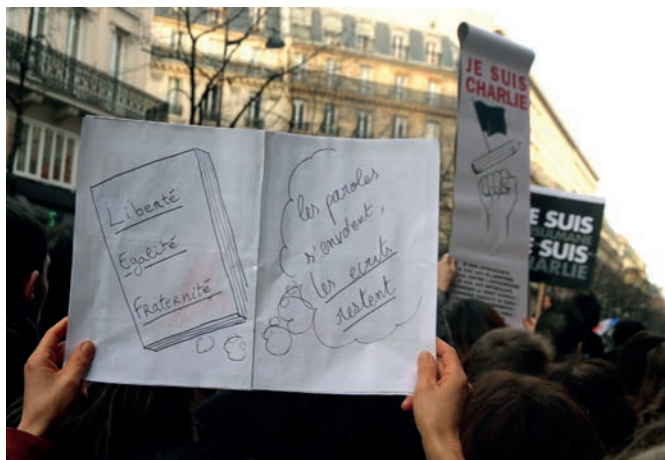 Liberté
Egalité
Fraternité
les paroles
s'envolent,
les ecrits
restent
JE SUIS
CHARLIE
JE SUIS
MUSULMANE
JE SUIS
CHARLIE